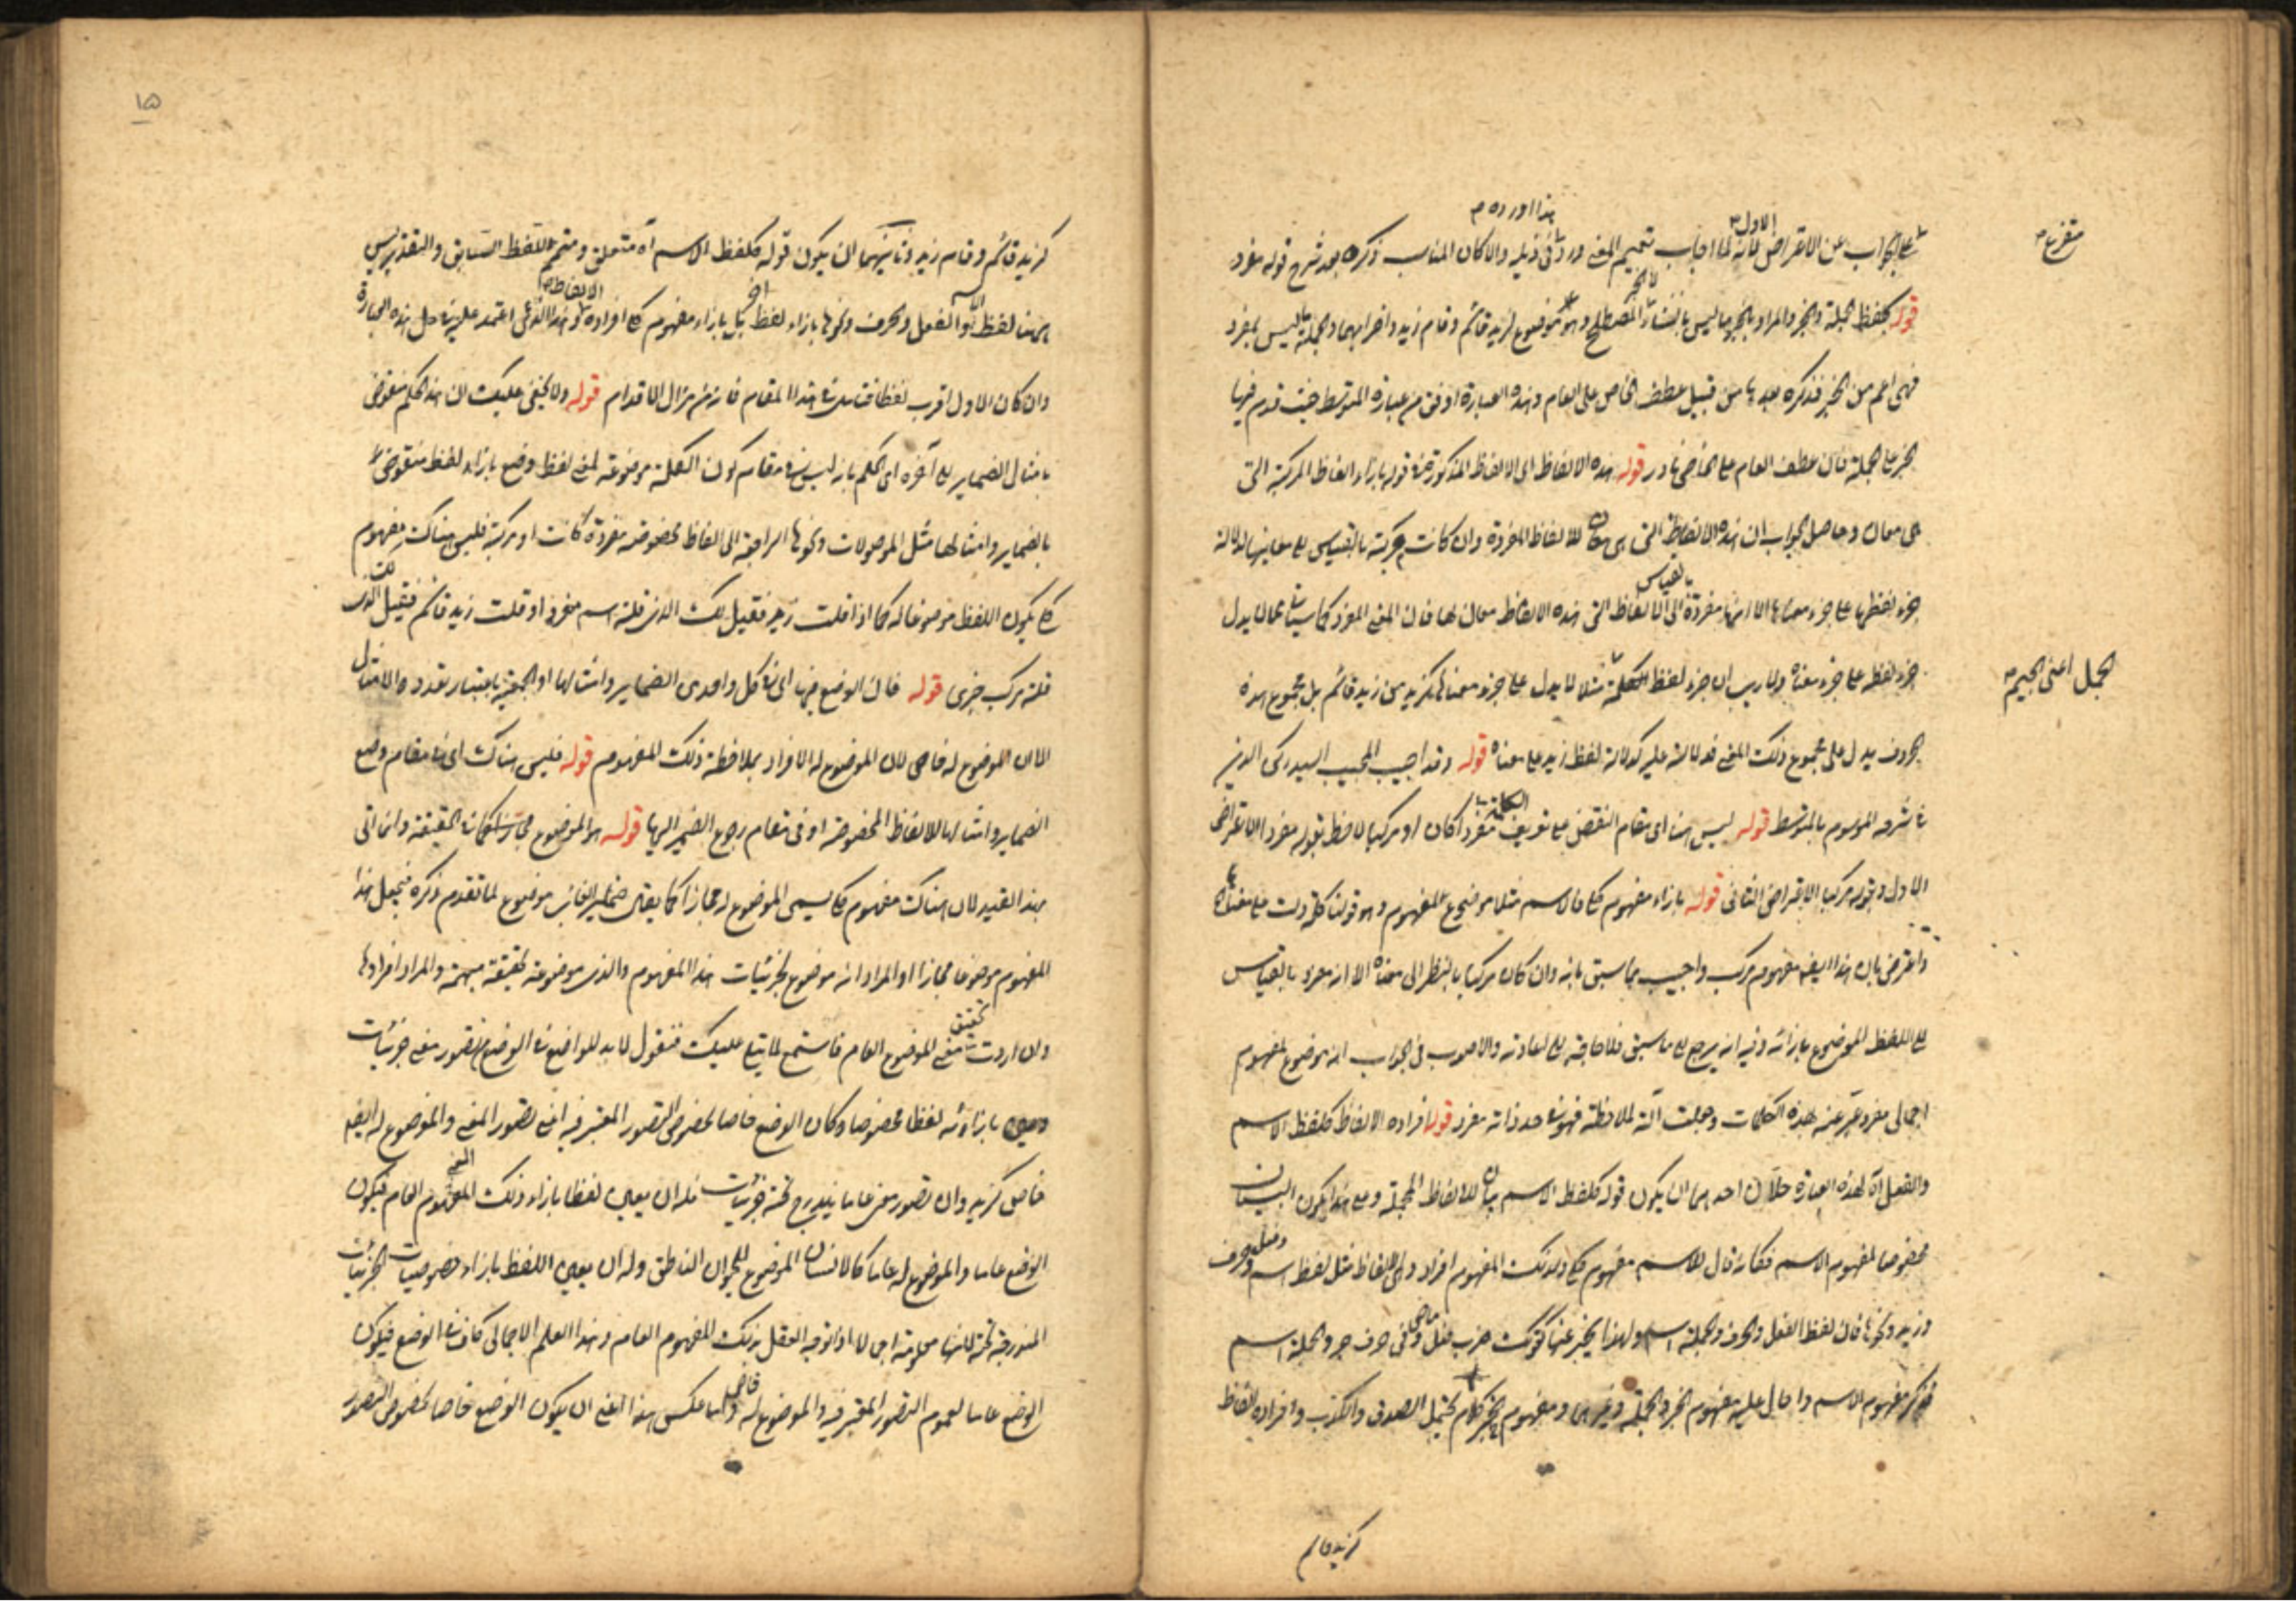 هذا اورده م
الاول م
متفرع م
على الجواب عن الاعتراض لانه لما اجاب بتعميم المعنى ورد في ذيله والا كان المناسب ذكره بعد شرح قوله مفرد
قوله كلفظ الجملة والخبر والمراد بالخبر ما ليس بانشاء المصطلح وهو موضوع لزيد قائم وقام زيد واضرابهما والجملة ما ليس بمفرد
فهى اعم من الخبر فذكره بعدها من قبيل عطف الخاص على العام وهذه العبارة اوفق من عبارة المتوسط حيث قدم فيها
الخبر على الجملة فان عطف العام على الخاص نادر قوله هذه الالفاظ اى الالفاظ المذكورة فى قوله بازاء الفاظ المركبة التى
هى معان وحاصل الجواب ان هذه الالفاظ التى هى معان للالفاظ المفردة وان كانت مركبة بالقياس الى معانيها لدلالة
بالقياس
جزء لفظها على جزء معناها الا انها مفردة الى الالفاظ التى هذه الالفاظ معان لها فان المعنى المفرد كما سياتى ما لا يدل
جزء لفظه على جزء معناه ولا ريب ان جزء لفظ الكلمة مثلا لا يدل على جزء معناها كزيد من زيد قائم بل مجموع هذه
الجمل اعنى الجيم م
الحروف يدل على مجموع ذلك المعنى فدلالته عليه كدلالة لفظ زيد على معناه قوله وقد اجيب المجيب السيد ركن الدين
فى شرحه الموسوم بالمتوسط قوله ليس هنا اى مقام النقض على تعريف الكلمة مفردا كان او مركبا لاحظ بقوله مفردا الاعتراض
الاول وبقوله مركبا الاعتراض الثانى قوله بازاء مفهوم كلى فالاسم مثلا موضوع لمفهوم وهو قولنا كلمة دلت على معناه
واعترض بان هذا ايضا مفهوم مركب واجيب بما سبق بانه وان كان مركبا بالنظر الى معناه الا انه مفرد بالقياس
الى اللفظ الموضوع بازائه وفيه انه يرجع الى ما سبق فلا حاجة الى اعادته والاصوب فى الجواب انه موضوع لمفهوم
اجمالى مفرد عبر عنه بهذه الكلمات وجعلت آلة لملاحظته فهو فى حد ذاته مفرد قوله افراده الالفاظ كلفظ الاسم
والفعل آه لهذه العبارة حلان احدهما ان يكون قوله كلفظ الاسم بيان للالفاظ المجملة وعلى هذا يكون البيان
مخصوصا لمفهوم الاسم فكانه قال للاسم مفهوم كلى ولذلك المفهوم افراد وهى الالفاظ مثل لفظ اسم وفعل وحرف
وزيد ونحوها فان لفظ الفعل والحرف والجملة اسم ولهذا يخبر عنها كقولك ضرب فعل ماض وفى حرف جر والجملة اسم
فذكر مفهوم الاسم واحال عليه مفهوم الخبر والجملة وغيرهما ومفهوم الخبر كلام يحتمل الصدق والكذب وافراده الفاظ
كزيد قائم
١٥
كزيد قائم وقام زيد وثانيهما ان يكون قوله كلفظ الاسم آه متعلق ومتمم اللفظ السابق والتقدير ليس
ههنا لفظ الاسم والفعل والحرف ونحوها بازاء لفظ آخر بل بازاء مفهوم كلى افراده الالفاظ وهذا الذى اعتمد عليه فى حل هذه العبارة
وان كان الاول اقرب لفظا فتامل فى هذا المقام فانه من مزال الاقدام قوله ولا يخفى عليك ان هذا الحكم منقوض
بامثال الضماير الى آخره اى الحكم بانه ليس فى مقام كون الكلمة موضوعة لمعنى لفظ وضع بازاء لفظ منقوض
بالضماير وامثالها مثل الموصولات ونحوها الراجعة الى الفاظ مخصوصة مفردة كانت او مركبة فليس هناك مفهوم
كلى يكون اللفظ موضوعا له كما اذا قلت زيد فقيل لك الذى قلته اسم مفرد او قلت زيد قائم فقيل لك الذى
قلته مركب خبرى قوله فان الوضع فيها اى فى كل واحد من الضماير وامثالها او الجمعية باعتبار تعدد الامثال
الا ان الموضوع له خاص لان الموضوع له الافراد بملاحظة ذلك المفهوم قوله فليس هناك اى فى مقام وضع
الضماير وامثالها للالفاظ المخصوصة او فى مقام رجع الضمير اليها قوله هو الموضوع له فى الحقيقة وانما اتى
بهذا القيد لان هناك مفهوم كلى يسمى الموضوع له مجازا كما يقال ضمير الغائب موضوع لما تقدم ذكره فيجعل هذا
المفهوم موضوعا مجازا او المراد انه موضوع لجزئيات هذا المفهوم والذى موضوعة لحقيقة مبهمة والمراد افرادها
وان اردت تحقيق معنى الموضوع العام فاستمع لما يتلى عليك فنقول لابد للواضع فى الوضع من تصور معنى جزئيات
وعين بازائه لفظا مخصوصا وكان الوضع خاصا لخصوص التصور المعتبر فيه اعنى تصور المعنى والموضوع له ايضا
خاص كزيد وان تصور معنى عاما يندرج تحته جزئيات فله ان يعين لفظا بازاء ذلك المعنى المفهوم العام فيكون
الوضع عاما والموضوع له عاما كالانسان الموضوع للحيوان الناطق وله ان يعين اللفظ بازاء خصوصيات الجزئيات
المندرجة تحته لانها معلومة اجمالا اذا توجه العقل بذلك المفهوم العام وهذا العلم الاجمالى كاف فى الوضع فيكون
الوضع عاما لعموم التصور المعتبر فيه والموضوع له خاص واما عكس هذا اعنى ان يكون الوضع خاصا لخصوص التصور